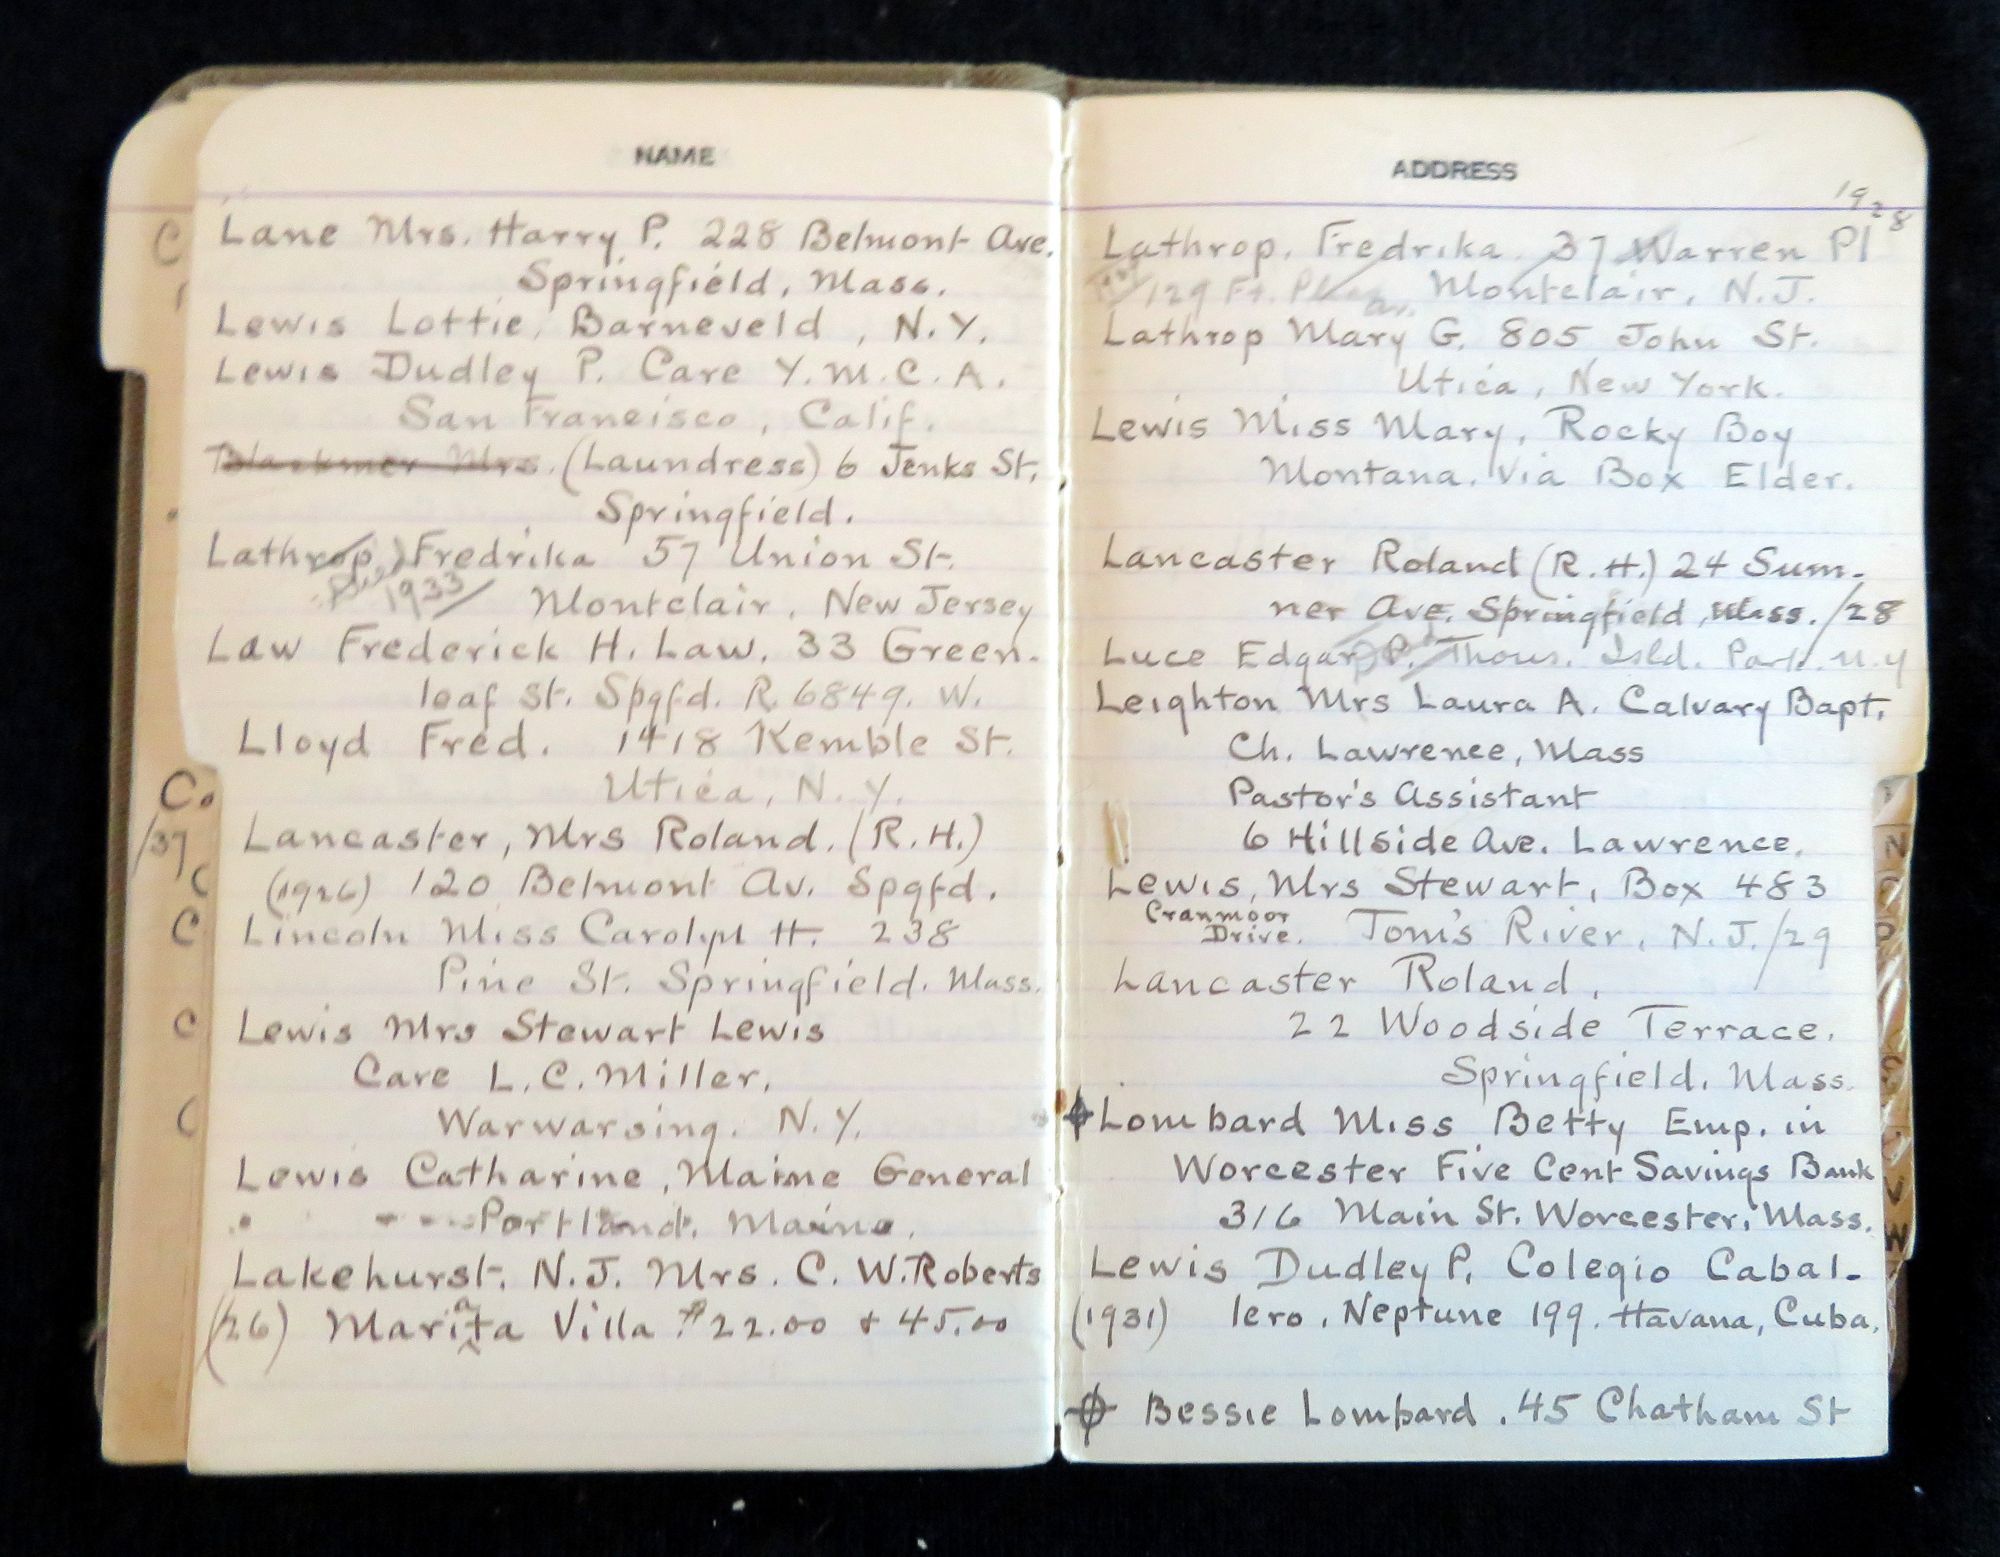 NAME
Lane Mrs. Harry P. 228 Belmont Ave.
Springfield, Mass.
Lewis Lottie, Barneveld, N.Y.
Lewis Dudley P. Care Y.M.C.A.
San Francisco, Calif.
Blackmer Mrs. (Laundress) 6 Jenks St.
Springfield.
Lathrop, Fredrika 57 Union St.
1933 Montclair, New Jersey
Law Frederick H. Law. 33 Green-
leaf St. Spgfd. R. 6849. W.
Lloyd Fred. 1418 Kemble St.
Utica, N.Y.
Lancaster, Mrs Roland. (R.H.)
(1926) 120 Belmont Av. Spgfd.
Lincoln Miss Carolyn H. 238
Pine St. Springfield. Mass.
Lewis Mrs Stewart Lewis
Care L.C. Miller,
Warwarsing. N.Y.
Lewis Catharine, Maine General
Portland, Maine.
Lakehurst, N.J. Mrs. C. W. Roberts
(26) Marita Villa $22.00 + 45.00
C
Co
/37
C
C
C
C
ADDRESS
1928
Lathrop, Fredrika. 37 Warren Pl
129 Ft. Av. Montclair, N.J.
Lathrop Mary G. 805 John St.
Utica, New York.
Lewis Miss Mary, Rocky Boy
Montana. Via Box Elder.
Lancaster Roland (R.H.) 24 Sum-
ner Ave. Springfield, Mass. /28
Luce Edgar P. Thous. Isld. Park. N.Y
Leighton Mrs Laura A. Calvary Bapt.
Ch. Lawrence, Mass
Pastor's Assistant
6 Hillside Ave. Lawrence.
Lewis, Mrs Stewart, Box 483
Cranmoor Drive. Tom's River, N.J. /29
Lancaster Roland,
22 Woodside Terrace.
Springfield, Mass.
Lombard Miss Betty Emp. in
Worcester Five Cent Savings Bank
316 Main St. Worcester, Mass.
Lewis Dudley P. Colegio Cabal-
(1931) lero, Neptune 199. Havana, Cuba.
Bessie Lombard. 45 Chatham St
N
P
V
W